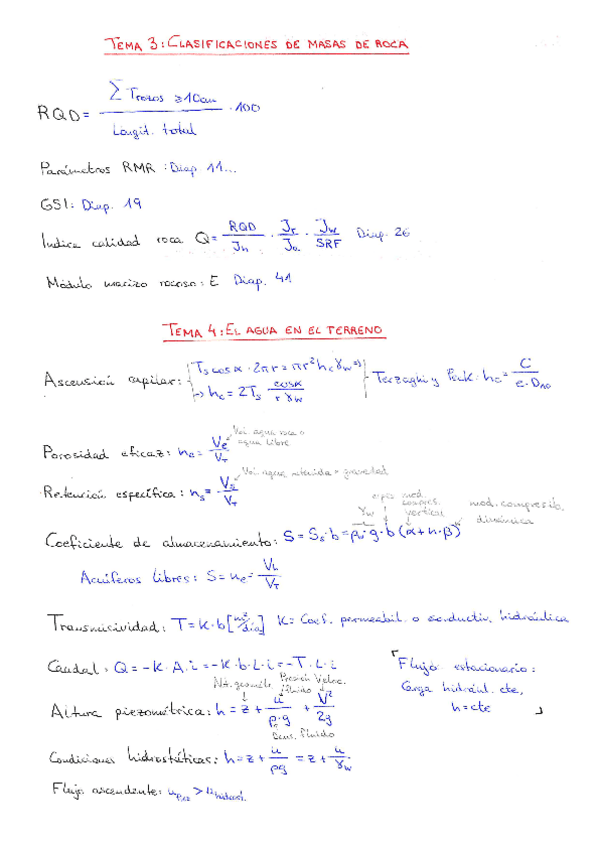 TEMA 3: CLASIFICACIONES DE MASAS DE ROCA
RQD = Σ Trozos ≥10cm / Longit. total · 100
Parámetros RMR : Diap. 11...
GSI: Diap. 19
Indice calidad roca Q = RQD/Jn · Jr/Ja · Jw/SRF Diap. 26
Módulo macizo rocoso: E Diap. 41
TEMA 4: EL AGUA EN EL TERRENO
Ascensión capilar: { Ts cosα · 2πr = πr² hc γw ⇒ } Terzaghi y Peck: hc = C / e·D10
→ hc = 2Ts cosα / r γw
agua libre
Porosidad eficaz: ne = Ve/VT
Vol agua retenida x gravedad
Retención específica: ns = Vs/VT
Coeficiente de almacenamiento: S = Ss·b = ρw·g·b (α+n·β)
γw
mod. compres. vertical
mod. compresib. dinámica
Acuíferos libres: S = ne = /VT
Transmisividad: T = K·b [m²/día] K = Coef. permeabil. o conductiv. hidráulica
Caudal: Q = -K·A·i = -K·b·L·i = -T·L·i
「Flujo estacionario:
Carga hidrául. cte,
h=cte 」
Presión fluido Veloc.
Altura piezométrica: h = z + u/ρ·g + V²/2g
Dens. fluido
Condiciones hidrostáticas: h = z + u/ρg = z + u/γw
Flujo ascendente: > u hidrost.